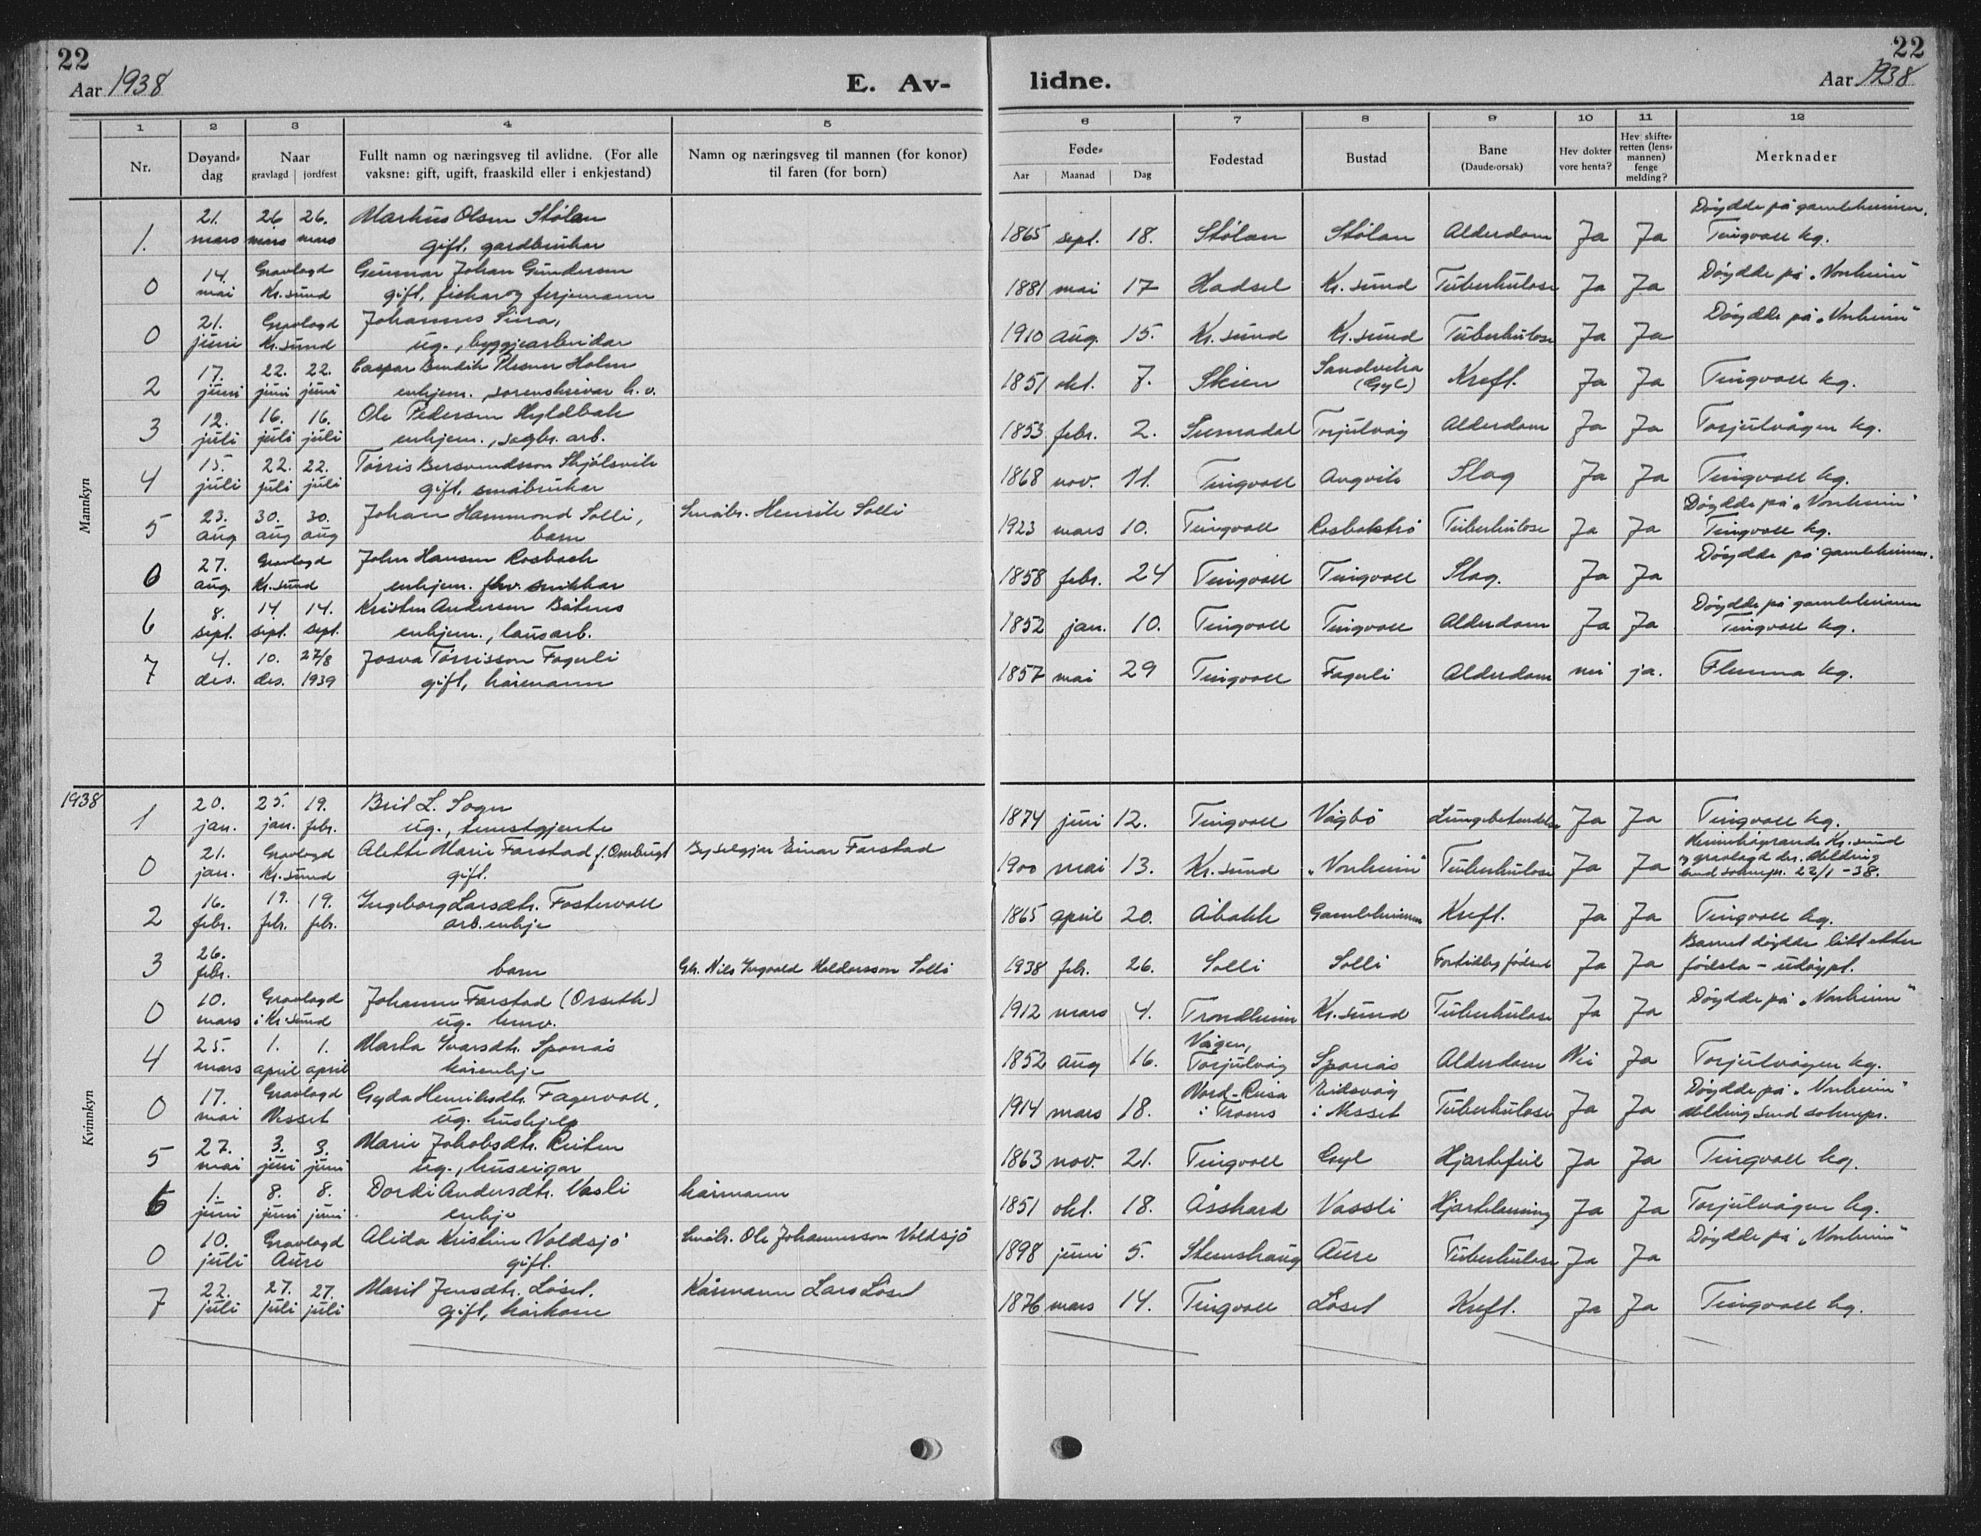 22
Aar 1938
E. Av-
lidne.
22
Aar 1938
1 2 3 4 5 6 7 8 9 10 11 12
Nr.
Døyand-dag
Naar
gravlagd jordfest
Fullt namn og næringsveg til avlidne. (For alle
vaksne: gift, ugift, fraaskild eller i enkjestand)
Namn og næringsveg til mannen (for konor)
til faren (for born)
Føde-
Aar Maanad Dag
Fødestad
Bustad
Bane
(Daude-orsak)
Hev dokter
vore henta?
Hev skifte-
retten (lens-
mannen)
fenge
melding?
Merknader
Mannkyn
1. 21. mars 26 mars 26. mars Markus Olsen Stølan gift, gardbrukar 1865 sept. 18. Stølan Stølan Alderdom Ja Ja Døydde på gamleheimen. Tingvoll kg.
0 14. mai Gravlagd Kr.sund Gunnar Johan Gundersen gift, fiskar og ferjemann 1881 mai 17 Hadsel Kr. sund Tuberkulose Ja Ja Døydde på "Vonheim"
0 21. juni Gravlagd Kr.sund Johannes ug., byggjearbeidar 1910 aug. 15. Kr. sund Kr. sund Tuberkulose Ja Ja Døydde på "Vonheim"
2 17. juni 22. juni 22. juni Caspar Bendik Holm enkjem., sorenskrivar 1851 okt. 7. Skien Sandvika (Gyl) Kreft. Ja Ja Tingvoll kg.
3 12. juli 16. juli 16. juli Ole Pedersen Hyldbak enkjem., sagbr. arb. 1853 febr. 2. Surnadal Torjulvåg Alderdom Ja Ja Torjulvågen kg.
4 15. juli 22. juli 22. juli Tørris Bersvendsson Skjølsvik gift, småbrukar 1868 nov. 11. Tingvoll Angvik Slag Ja Ja Tingvoll kg.
5 23. aug 30. aug 30. aug Johan Hammond Solli, barn Småbr. Henrik Solli 1923 mars 10. Tingvoll Tuberkulose Ja Ja Døydde på "Vonheim" Tingvoll kg.
0 27. aug. Gravlagd Kr.sund John Hansen Rosbach enkjem. fhv. snikkar 1858 febr. 24 Tingvoll Tingvoll Slag. Ja Ja Døydde på gamleheimen.
6 8. sept. 14 sept. 14. sept. Kristen Andersen Båtnes enkjem., lausarb. 1852 jan. 10. Tingvoll Tingvoll Alderdom Ja Ja Døydde på gamleheimen Tingvoll kg.
7 4. des. 10. des. 27/8 1939 Josva Tørrisson Fagerli gift, kårmann 1857 mai 29 Tingvoll Fagerli Alderdom nei ja. Flemma kg.
1938
Kvinnkyn
1 20. jan. 25. jan. 19. febr. Brit L. Sogn ug., tenestgjente 1874 juni 12. Tingvoll Vågbø Lungebetendelse Ja Ja Tingvoll kg.
0 21. jan. Gravlagd Kr.sund Alette Marie Farstad f. gift. Einar Farstad 1900 mai 13. Kr. sund "Vonheim" Tuberkulose Ja Ja Kr. sund og gravlagd der. Melding send soknepr. 22/1-38.
2 16. febr. 19. febr. 19. febr. Ingeborg Larsdtr. Fostervoll arb. enkje 1865 april 20. Åbakk Gamleheimen Kreft. Ja Ja Tingvoll kg.
3 26. febr. barn Gbr. Nils Ingvald Haldorsson Solli 1938 febr. 26. Solli Solli Fortidleg fødsel Ja Ja Barnet døydde litt etter fødsla - udøypt.
0 10. mars Gravlagd i Kr.sund Johanne Farstad (Orseth) ug. 1912 mars 4. Trondheim Kr. sund Tuberkulose Ja Ja Døydde på "Vonheim"
4 25. mars 1. april 1. april Marta Ivarsdtr. Sponås kårenkje 1852 aug 16. Vågen, Torjulvåg Sponås Alderdom Nei Ja Torjulvågen kg.
0 17. mai Gravlagd Nesset Gyda Henriksdtr. Fagervoll, ug. hushjelp 1914 mars 18. Nord-Reisa i Troms Eidsvåg i Nesset Tuberkulose Ja Ja Døydde på "Vonheim" Melding send soknepr.
5 27. mai 3. juni 3. juni Marie Jakobsdtr. Reiten ug., huseigar 1863 nov. 21. Tingvoll Gyl Hjartefeil Ja Ja Tingvoll kg.
6 1. juni 8. juni 8. juni Dordi Andersdtr. Vasli enkje kårmann 1851 okt. 18. Åsskard Vassli Hjartelamning Ja Ja Torjulvågen kg.
0 10. juli Gravlagd Aure Alida Kristine Voldsjø gift. Småbr. Ole Johannesson Voldsjø 1898 juni 5. Stemshaug Aure Tuberkulose Ja Ja Døydde på "Vonheim"
7 22. juli 27. juli 27. juli Marit Jensdtr. Løset. gift, kårkone Kårmann Lars Løset 1876 mars 14. Tingvoll Løset Kreft. Ja Ja Tingvoll kg.